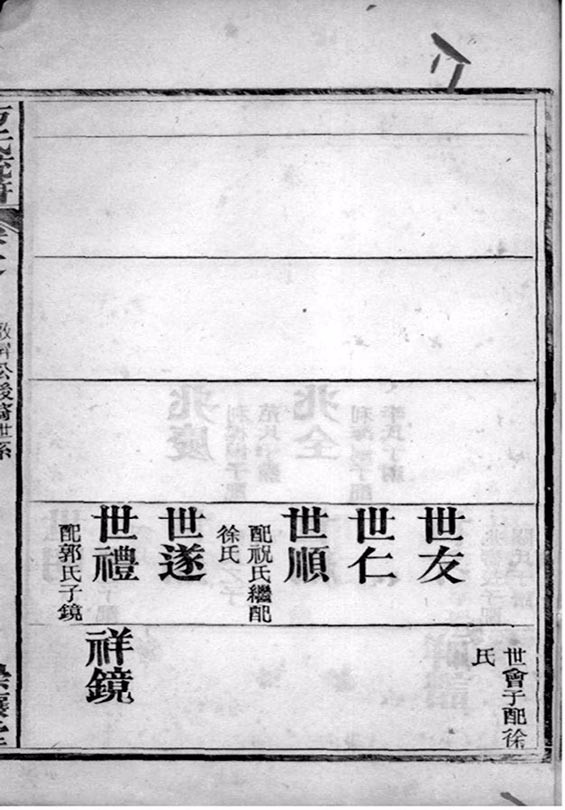 世友
世仁
世順
配祝氏繼配
徐氏
世遂
世禮
配郭氏子鏡
世會子配徐
氏
祥鏡
公後裔世系